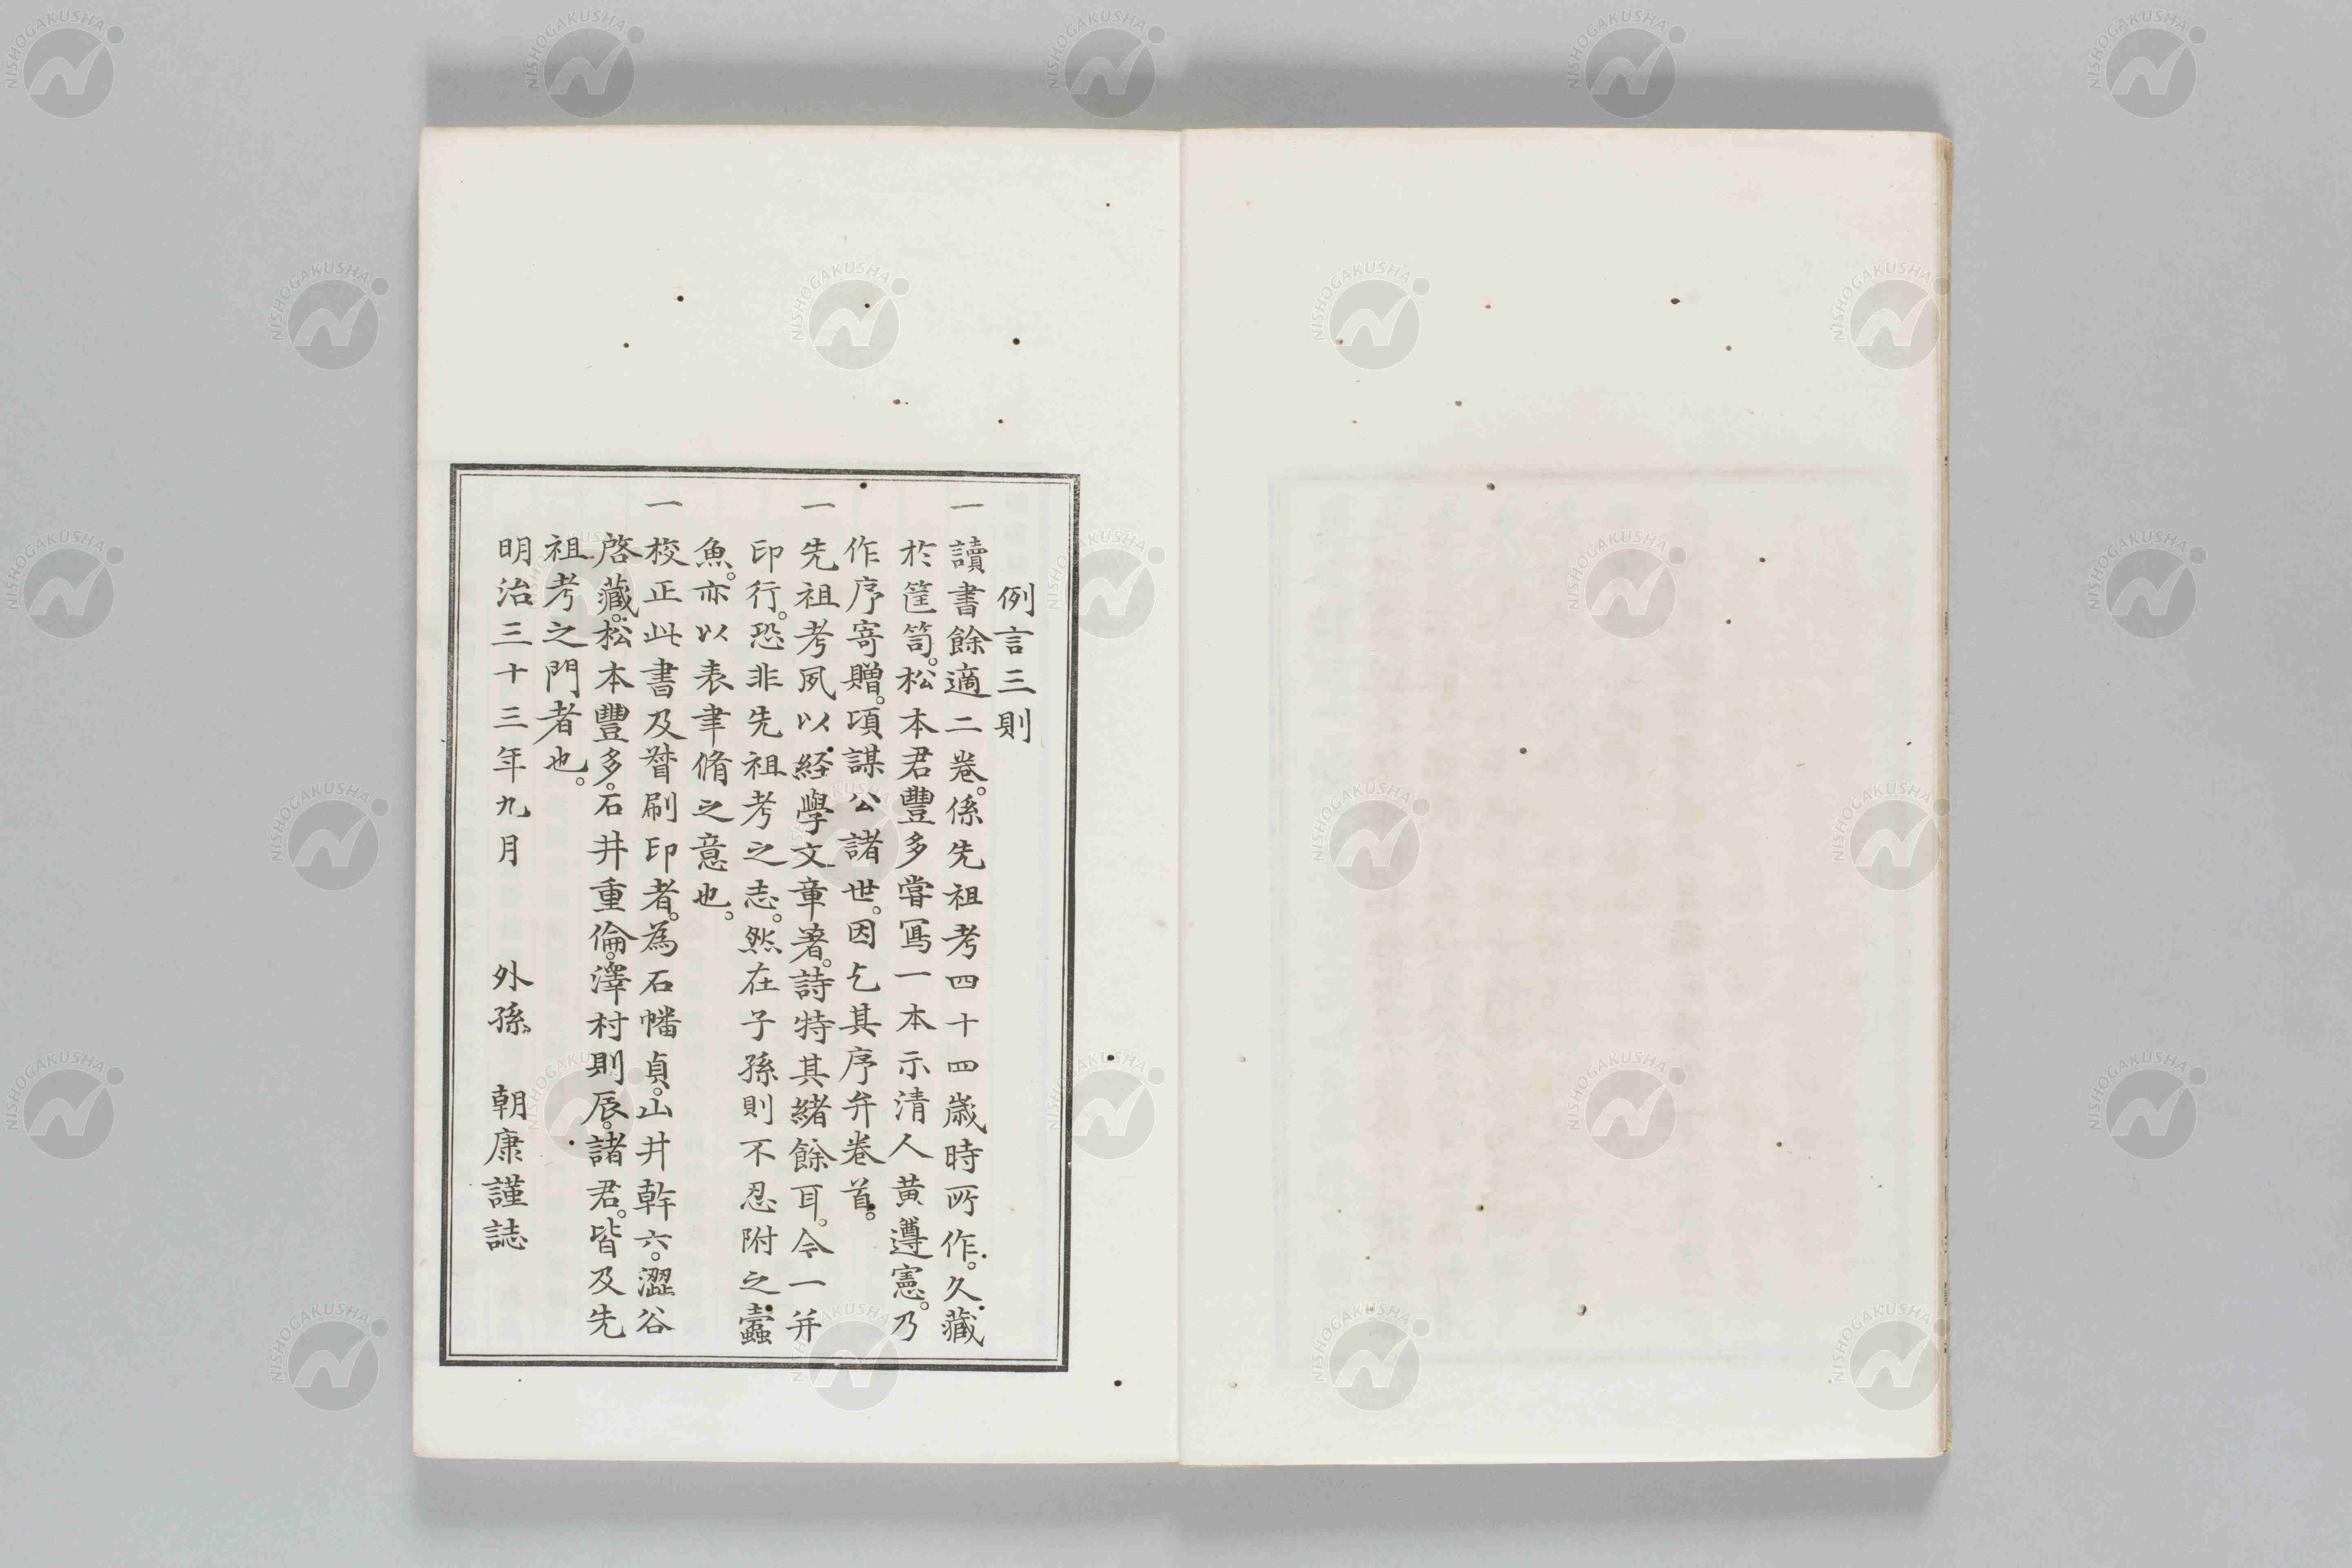 例言三則
一讀書餘適二卷。係先祖考四十四歲時所作。久藏
於筐笥。松本君豐多嘗寫一本示清人黄遵憲。乃
作序寄贈。頃謀公諸世。因乞其序弁卷首。
一先祖考夙以経學文章著。詩特其緒餘耳。今一并
印行。恐非先祖考之志。然在子孫則不忍附之蠹
魚。亦以表聿脩之意也。
一校正此書及督刷印者。為石幡貞。山井幹六。澀谷
啓藏。松本豐多。石井重倫。澤村則辰。諸君。皆及先
祖考之門者也。
明治三十三年九月　外孫　朝康謹誌
NISHOGAKUSHA